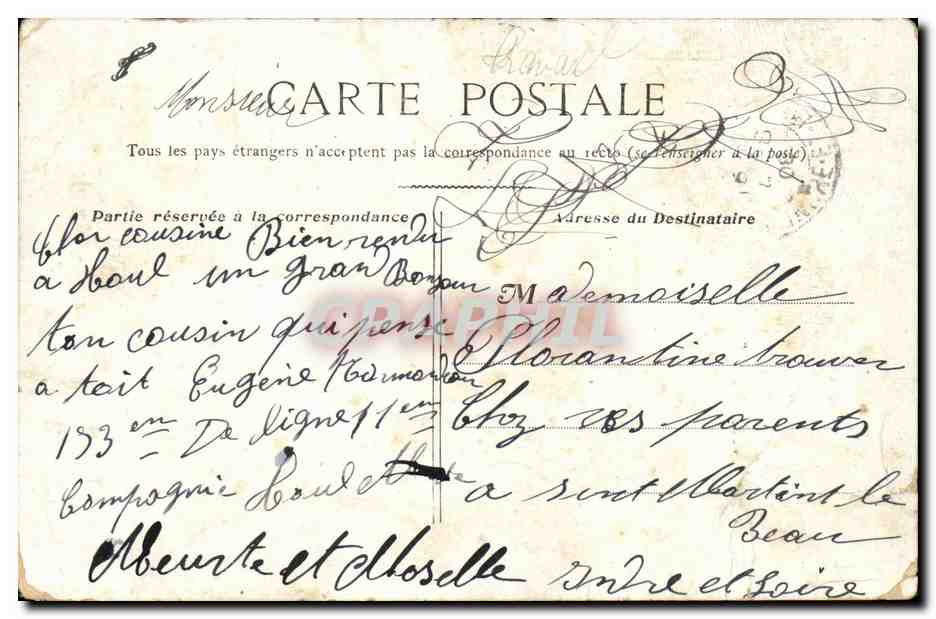 Monsieur
CARTE POSTALE
Tous les pays étrangers n'acceptent pas la correspondance au recto (se renseigner à la poste)
Partie réservée à la correspondance
Cher cousine Bien rendu
a Houl un grand Bonjour
ton cousin qui pense
a toit Eugène
153 em De ligne 11 em
Compagnie Houl
Meurte et Moselle
Adresse du Destinataire
Mademoiselle
Florantine trouver
Chez ses parents
a sint Martint le
Beau
Indre et Loire
CPAPHIL